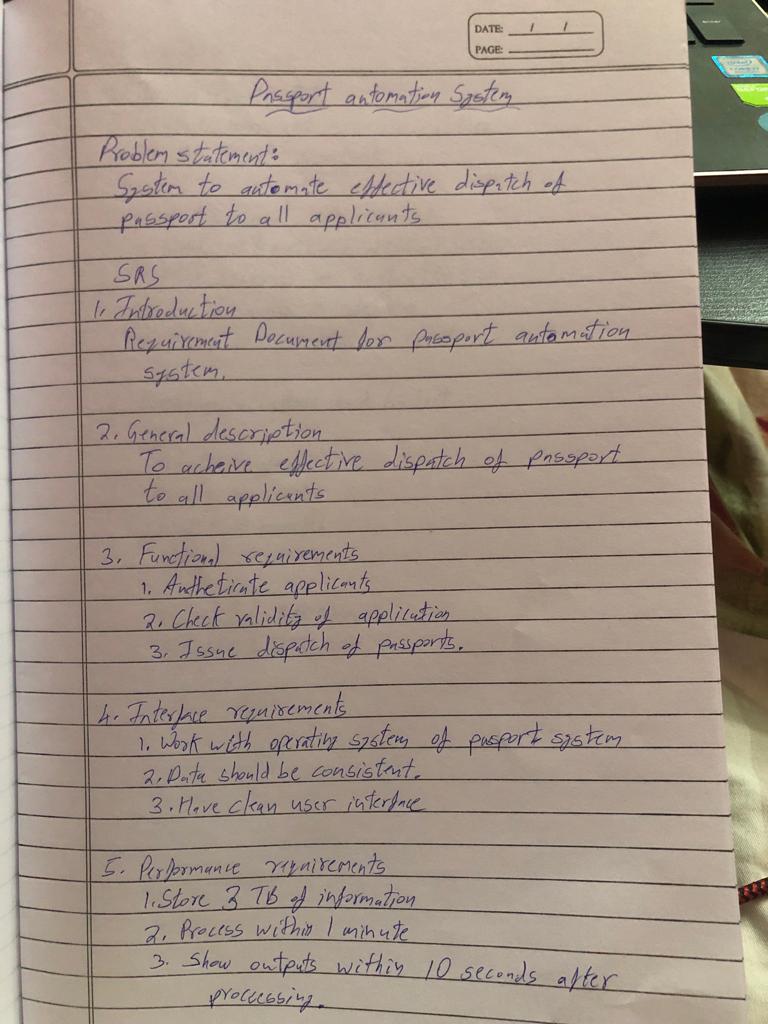 DATE: / /
PAGE:
Passport automation System
Problem statement:
System to automate effective dispatch of
passport to all applicants
SRS
1. Introduction
Requirement Document for passport automation
system.
2. General description
To acheive effective dispatch of passport
to all applicants
3. Functional requirements
1. Autheticate applicants
2. Check validity of application
3. Issue dispatch of passports.
4. Interface requirements
1. Work with operating system of passport system
2. Data should be consistent.
3. Have clean user interface
5. Performance requirements
1. Store 3 TB of information
2. Process within 1 minute
3. Show outputs within 10 seconds after
proccessing.